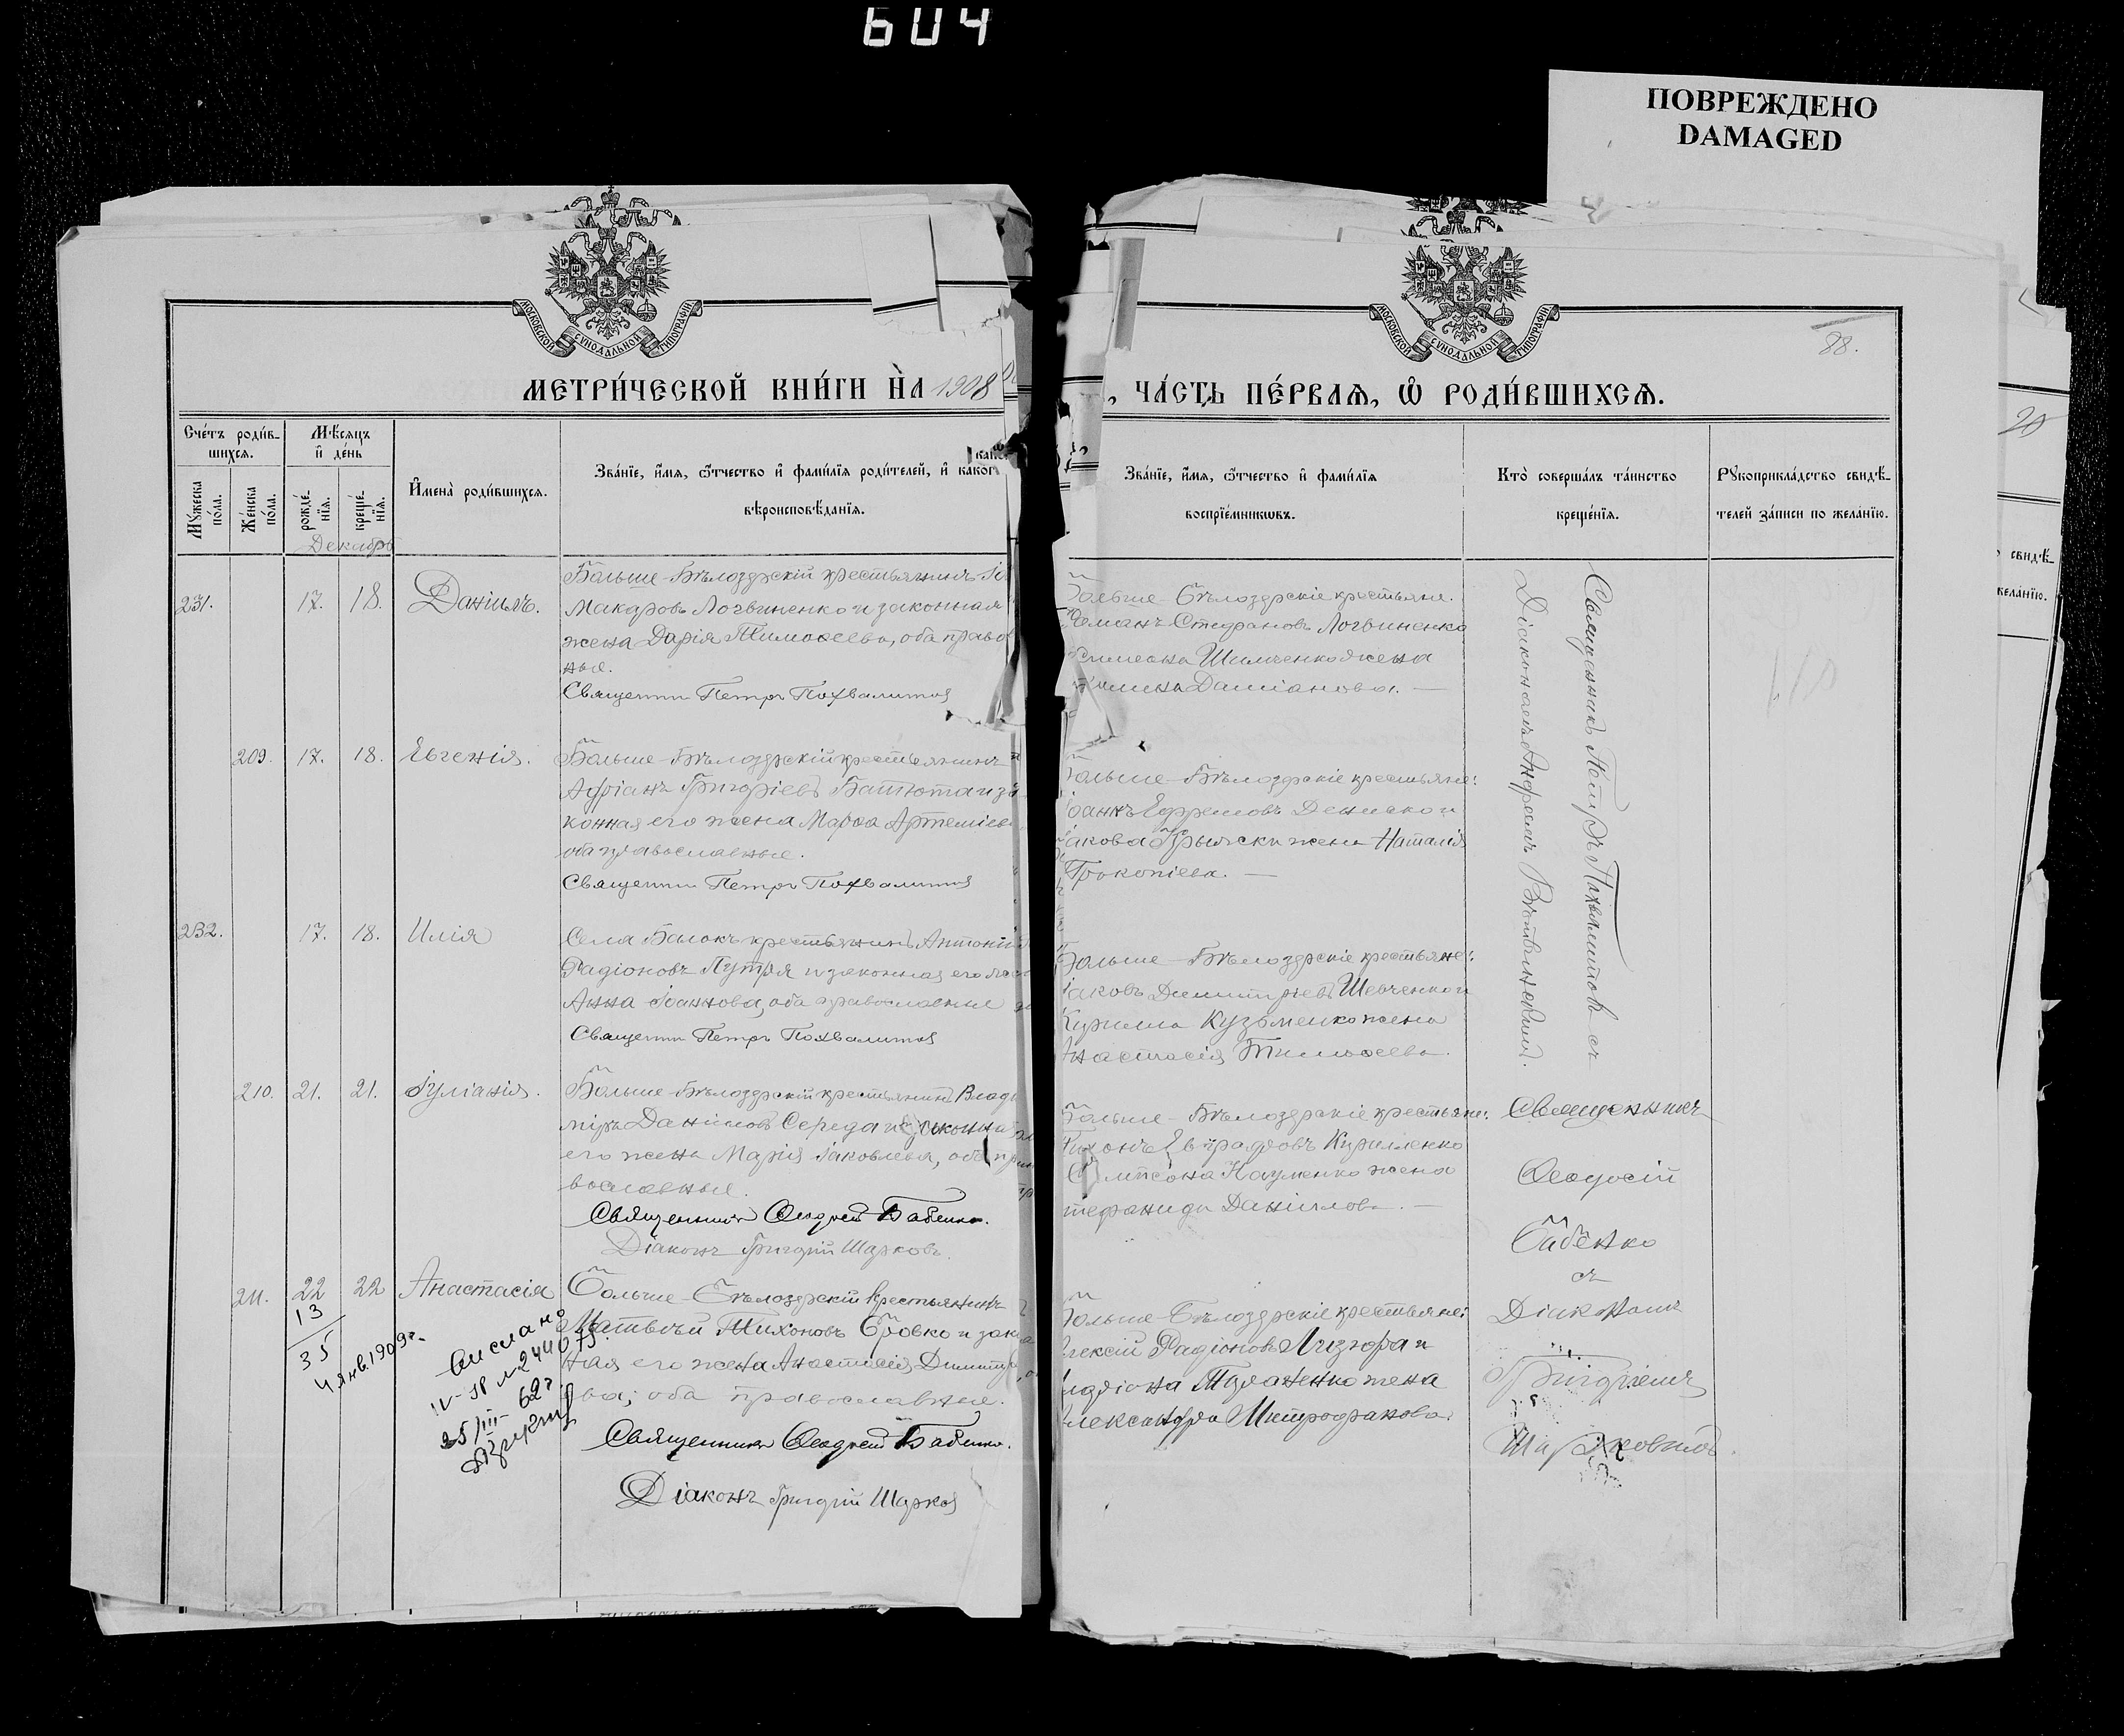 604
ПОВРЕЖДЕНО
DAMAGED
МОСКОВСКОЙ СУНОДАЛЬНОЙ ТИПОГРАФІИ
МОСКОВСКОЙ СУНОДАЛЬНОЙ ТИПОГРАФІИ
88.
20
МЕТРИ́ЧЕСКОЙ КНИ́ГИ НА̀ 1908
, ЧА́СТЬ ПЕ́РВАѦ, Ѡ҆ РОДИ́ВШИХСѦ.
Сче́тъ роди́в-
шихсѧ.
Мѣ́сѧцъ
и҆ де́нь
Мꙋ́жеска по́ла.
Же́нска по́ла.
рожде́-нїѧ.
креще́-нїѧ.
И҆мена̀ роди́вшихсѧ.
Зва́нїе, и҆́мѧ, ѻ҆́тчество и҆ фами́лїѧ роди́телей, и҆ како́г
вѣроисповѣ́данїѧ.
Зва́нїе, и҆́мѧ, ѻ҆́тчество и҆ фами́лїѧ
воспрїе́мникѡвъ.
Кто̀ соверша́лъ та́инство
креще́нїѧ.
Рꙋкоприкла́дство свидѣ́-
телей за́писи по жела́нїю.
свидѣ́-
жела́нїю.
Декабрь
231. 17. 18. Даніилъ.
Больше-Бѣлозерскій крестьянинъ
Макаровъ Логвиненко и законная
жена Дарія Тимоѳеева, оба право
ные.
Священник Петръ Похвалитов
Больше-Бѣлозерскіе крестьяне.
Романъ Стефановъ Логвиненко
Симеона Шимченко жена
Даміанова. —
Священникъ Петръ Похвалитовъ съ
Діакономъ Андреемъ
209. 17. 18. Евгенія.
Больше-Бѣлозерскій крестьянинъ
Адріанъ Григоріевъ Батюта и за
конная его жена Марѳа Артеміев
оба православные.
Священник Петръ Похвалитов
ольше-Бѣлозерскіе крестьяне:
оаннъ Ефремовъ Дениско и
акова жена Наталія
Прокопіева. —
232. 17. 18. Илія
Села Балокъ крестьянинъ Антоній
Радіоновъ Путря и законная его же
Анна Іоаннова, оба православные
Священник Петръ Похвалитов
Больше-Бѣлозерскіе крестьяне:
Іаковъ Димитріевъ Шевченко и
Кирилла Кузьменко жена
Анастасія Тимоѳеева.
210. 21. 21. Іуліанія.
Больше-Бѣлозерскій крестьянинъ Влади
міръ Даніиловъ Середа и законна
его жена Марія Іаковлева, оба пра
вославные.
Священник Ѳеодосій Бабенко.
Діаконъ Григорій Шарковъ.
ольше-Бѣлозерскіе крестьяне:
Тихонъ Евграфовъ Кириленко
Сампсона Науменко жена
тефанида Даніилова. —
Священникъ
Ѳеодосій
Бабенко
съ
Діакономъ
Григоріемъ
Шарковымъ.
211. 22 22 Анастасія
13
35
4 янв. 1909 г.
Больше-Бѣлозерскій крестьянинъ
Матвѣй Тихоновъ Бровко и закон
ная его жена Анастасія Димитр
ева; оба православные.
Священник Ѳеодосій Бабенко.
Діаконъ Григорій Шарков
25/III- 62 г.
ольше-Бѣлозерскіе крестьяне:
лексій Радіоновъ Лизгора и
жена
лександра Митрофанова.